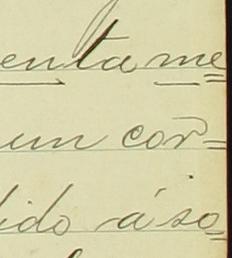 enta me=
um cor=
dido á so=